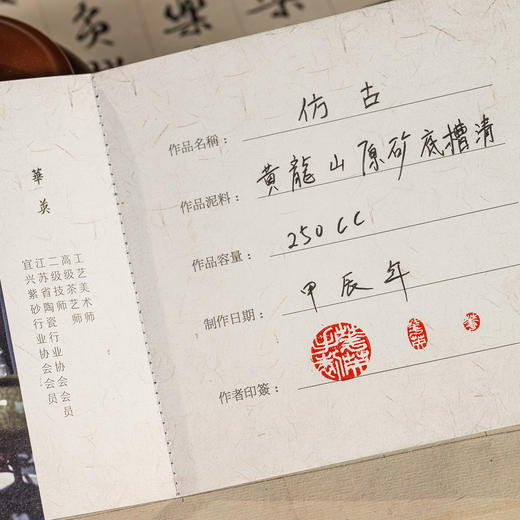 作品名稱：仿古
作品泥料：黃龍山原矿底槽清
作品容量：250CC
制作日期：甲辰年
作者印簽：
華英
工艺美术师
高级茶艺师
二级技师
江苏省陶瓷行业协会会员
宜兴紫砂行业协会会员